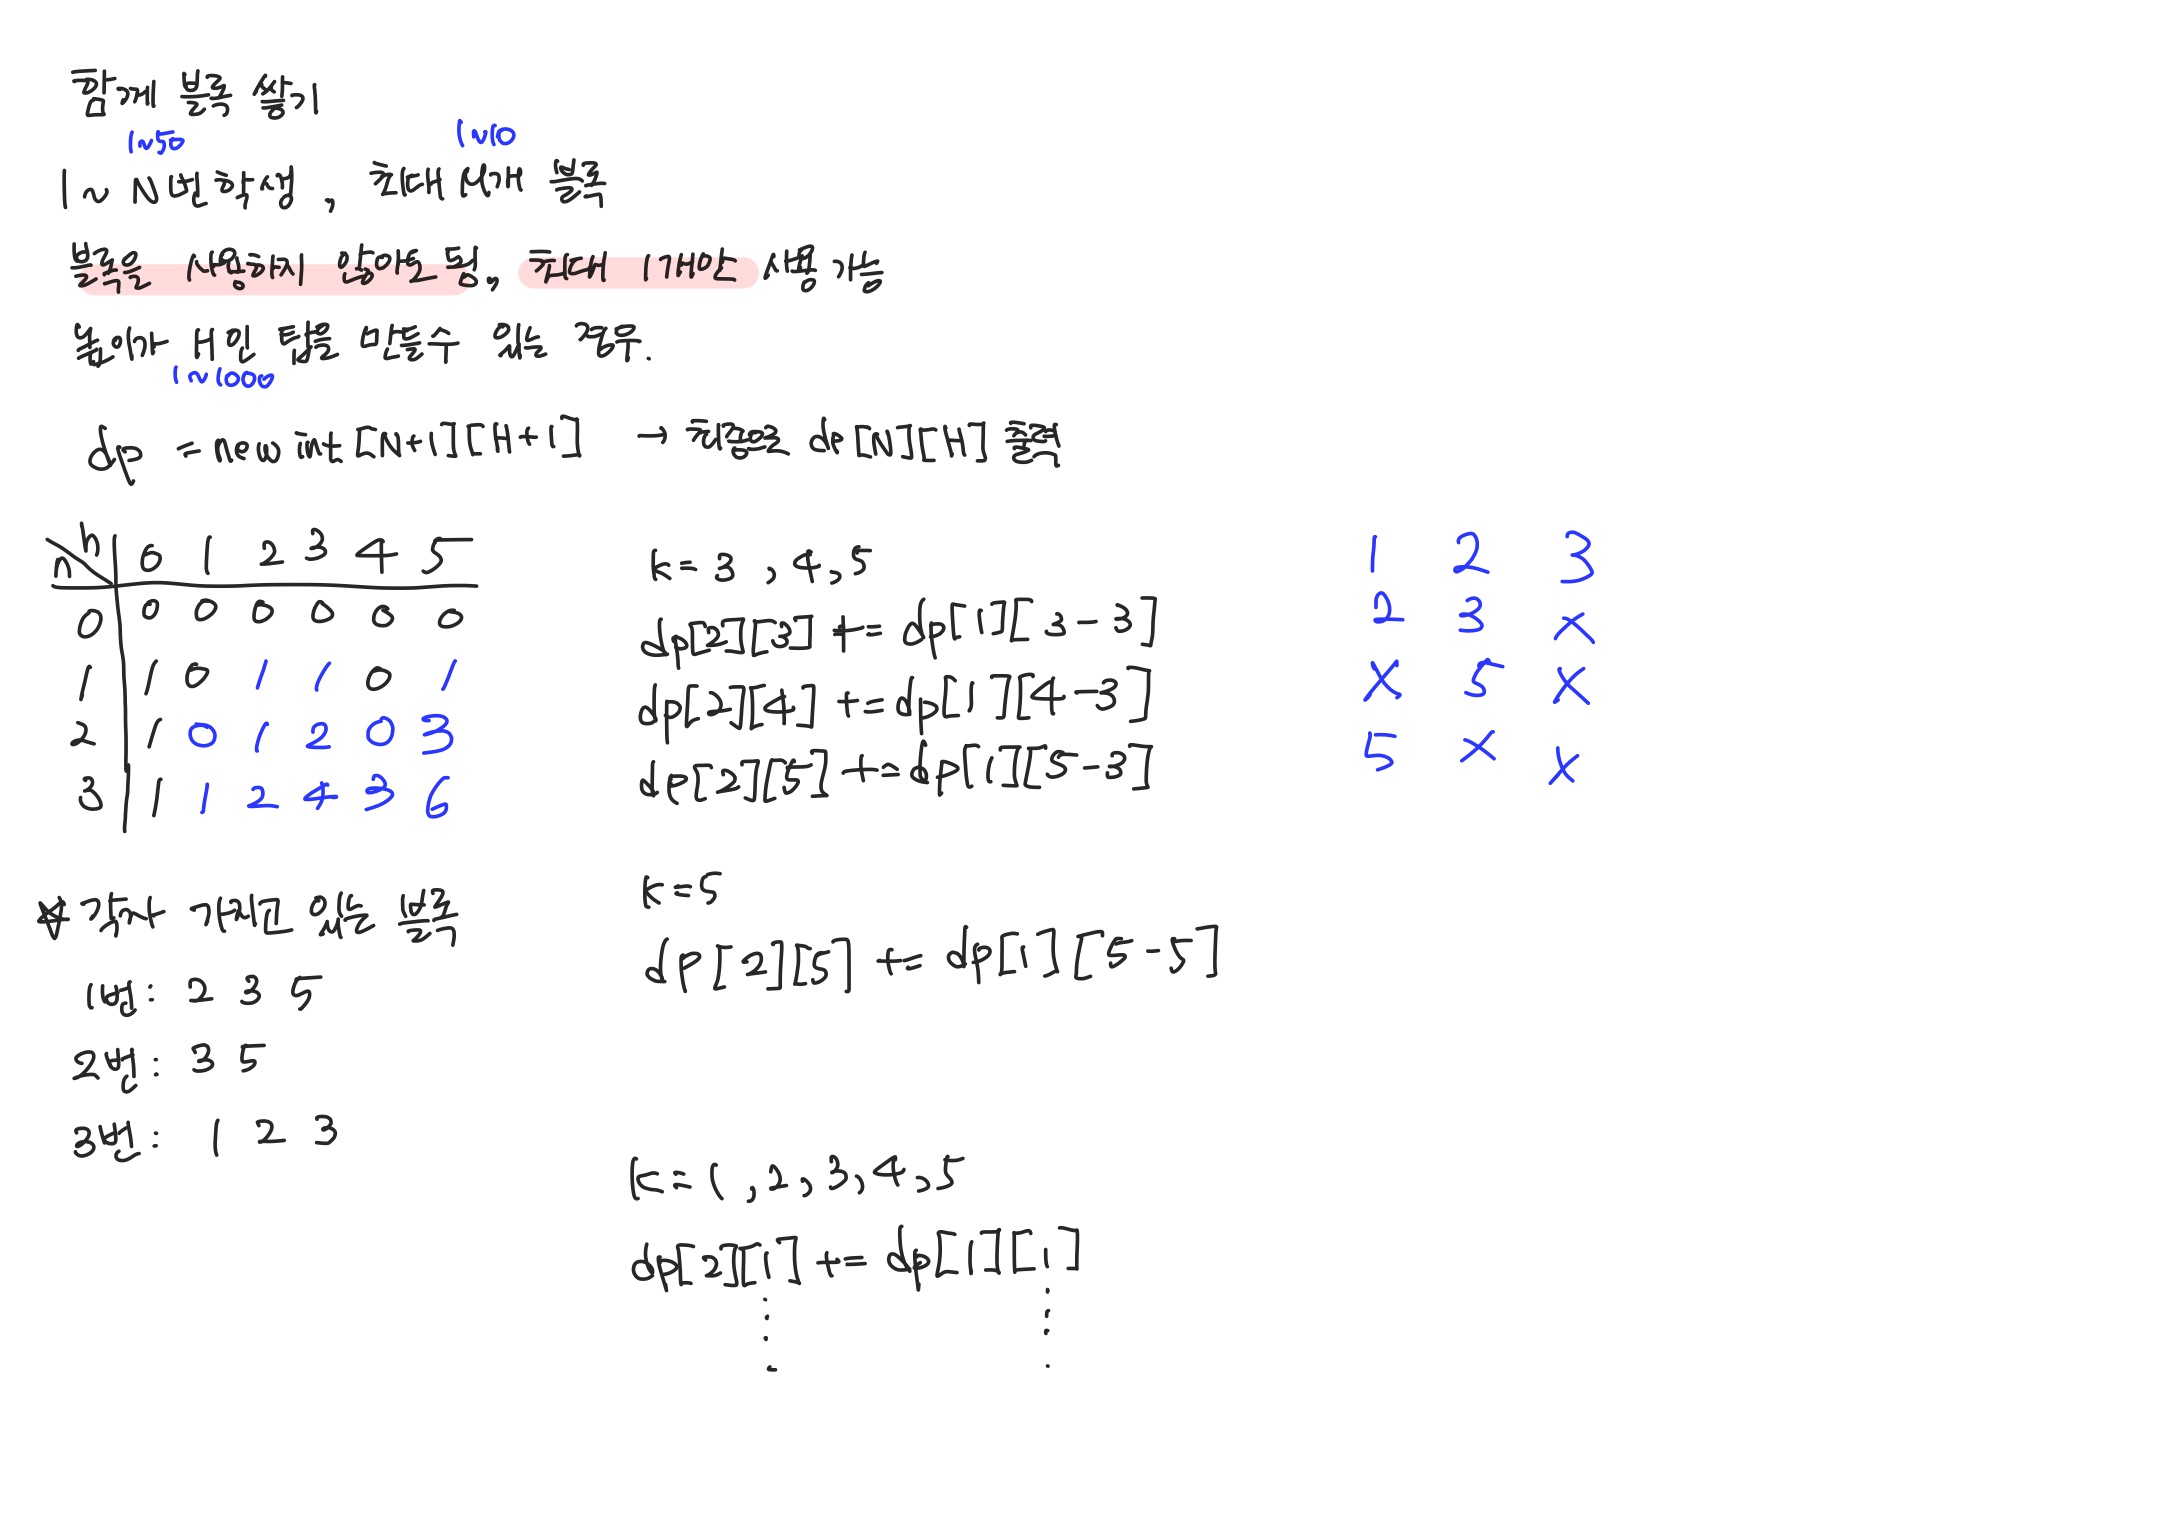 함께 블록 쌓기
1~50 1~10
1 ~ N번 학생 , 최대 M개 블록
블록을 사용하지 않아도 됨, 최대 1개만 사용 가능
높이가 H인 탑을 만들수 있는 경우.
1~1000
dp = new int [N+1][H+1] → 최종으로 dp[N][H] 출력
n\h 0 1 2 3 4 5
0 0 0 0 0 0 0
1 1 0 1 1 0 1
2 1 0 1 2 0 3
3 1 1 2 4 3 6
☆ 각자 가지고 있는 블록
1번: 2 3 5
2번: 3 5
3번: 1 2 3
k = 3 , 4, 5
dp[2][3] += dp[1][3-3]
dp[2][4] += dp[1][4-3]
dp[2][5] += dp[1][5-3]
k = 5
dp[2][5] += dp[1][5-5]
k = 1 , 2, 3, 4, 5
dp[2][1] += dp[1][1]
1 2 3
2 3 X
X 5 X
5 X X